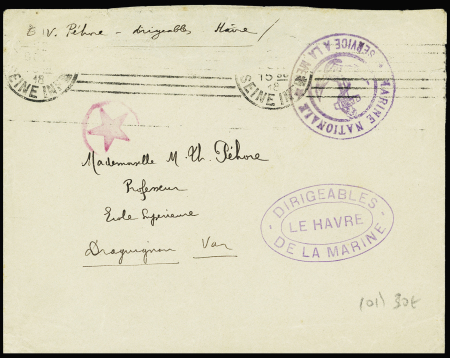 E.V. Péhore - dirigeables Havre
SEINE INF
18
SEINE INF
15
18
MARINE NATIONALE
SERVICE A LA MER
Mademoiselle M. Th. Péhore
Professeur
Ecole Supérieure
Draguignan Var
DIRIGEABLES
LE HAVRE
DE LA MARINE
(01) 30€